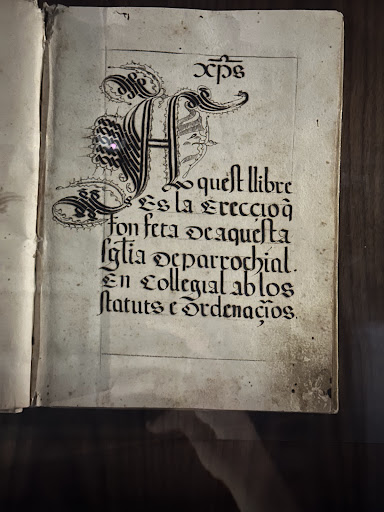 Xp̄s
A
quest llibre
Es la Erecciò q̄
fon feta De aquesta
Sgl̄ia De parrochial.
En Collegial ab los
statuts e Ordenaçiōs.